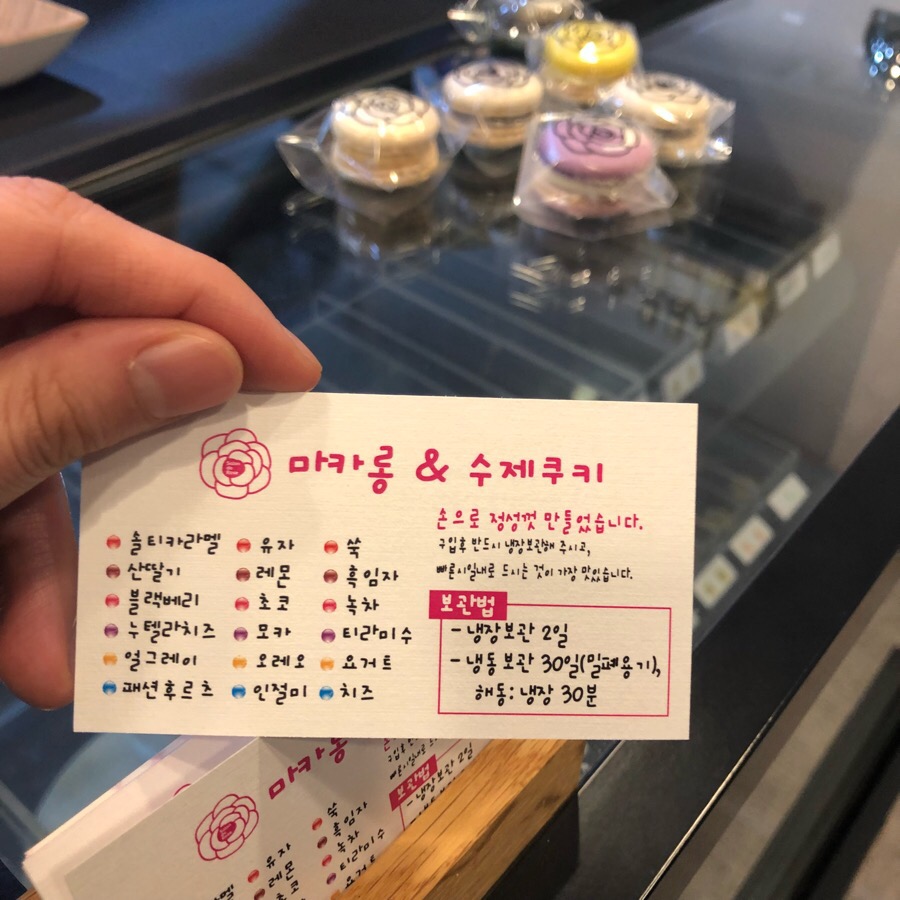 마카롱 & 수제쿠키
손으로 정성껏 만들었습니다.
구입후 반드시 냉장보관해 주시고,
빠른시일내로 드시는 것이 가장 맛있습니다.
솔티카라멜 유자 쑥
산딸기 레몬 흑임자
블랙베리 초코 녹차
누텔라치즈 모카 티라미수
얼그레이 오레오 요거트
패션후르츠 인절미 치즈
보관법
- 냉장보관 2일
- 냉동보관 30일(밀폐용기),
해동: 냉장 30분
마카롱
보관법
- 냉장보관 2일
유자 쑥
레몬 흑임자
초코 녹차
티라미수
요거트